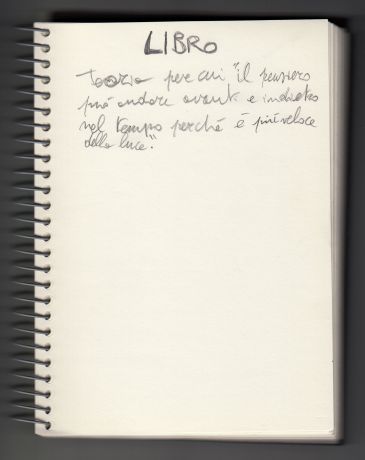 LIBRO
Teoria per cui "il pensiero
può andare avanti e indietro
nel tempo perché è più veloce
della luce".